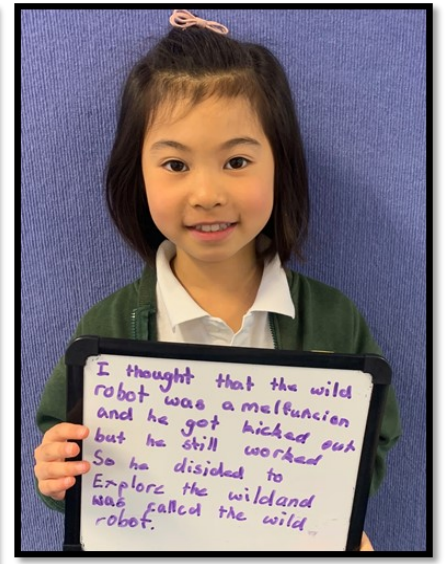 I thought that the wild
robot was a melfuncien
and he got kicked out
but he still worked
So he disided to
Explore the wildand
was called the wild
robot.